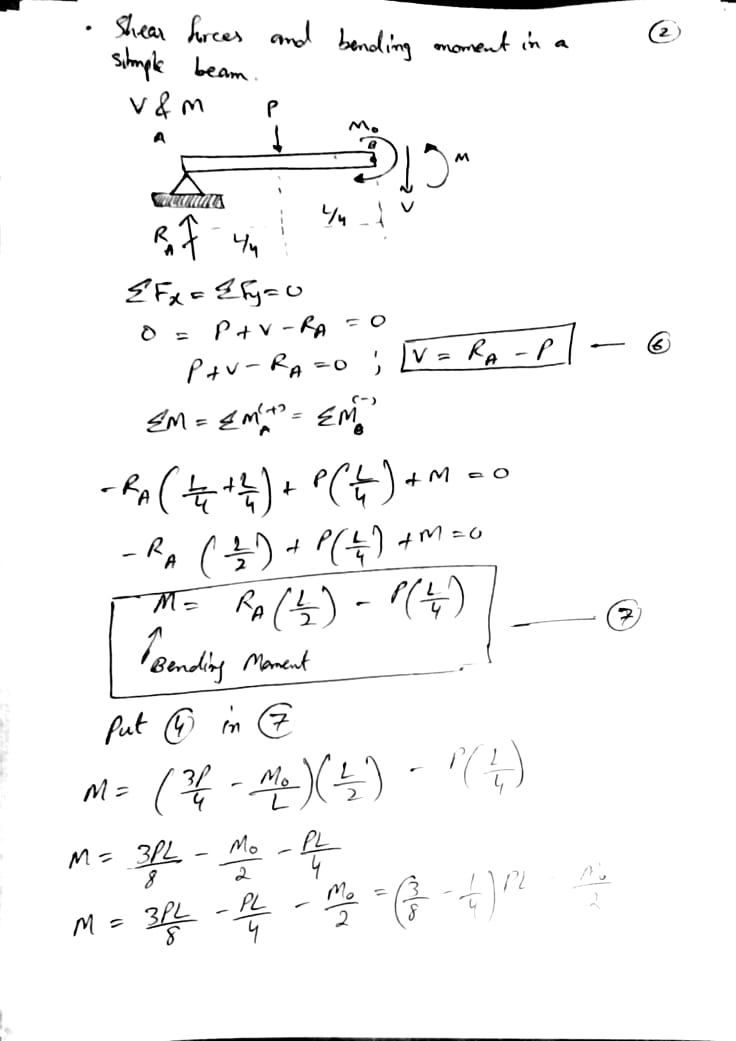 • Shear forces and bending moment in a ②
simple beam.
V & M
P
A
M₀
B
M
V
R_A
L/4
L/4
ΣFx = ΣFy = 0
0 = P + V - R_A = 0
P + V - R_A = 0 ; V = R_A - P — ⑥
ΣM = ΣM_A^(+) = ΣM_B^(-)
-R_A (L/4 + L/4) + P(L/4) + M = 0
- R_A (L/2) + P(L/4) + M = 0
M = R_A (L/2) - P(L/4) — ⑦
↑ Bending Moment
Put ④ in ⑦
M = (3P/4 - M₀/L)(L/2) - P(L/4)
M = 3PL/8 - M₀/2 - PL/4
M = 3PL/8 - PL/4 - M₀/2 = (3/8 - 1/4) PL - M₀/2